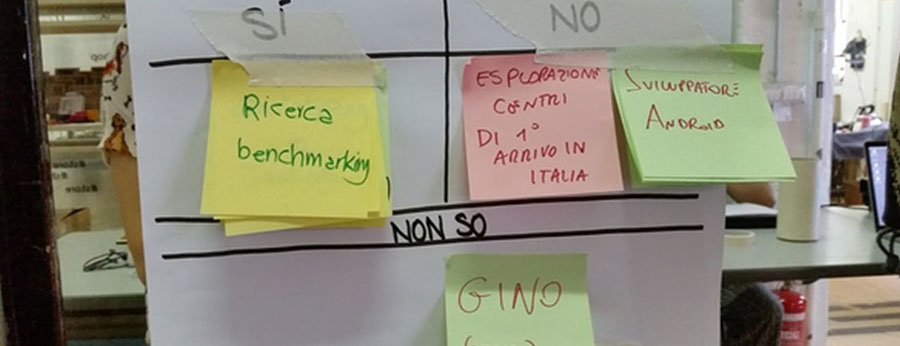 SÌ
NO
Ricerca
benchmarking
ESPLORAZIONE
CENTRI
DI 1°
ARRIVO IN
ITALIA
SVILUPPATORE
ANDROID
NON SO
GINO